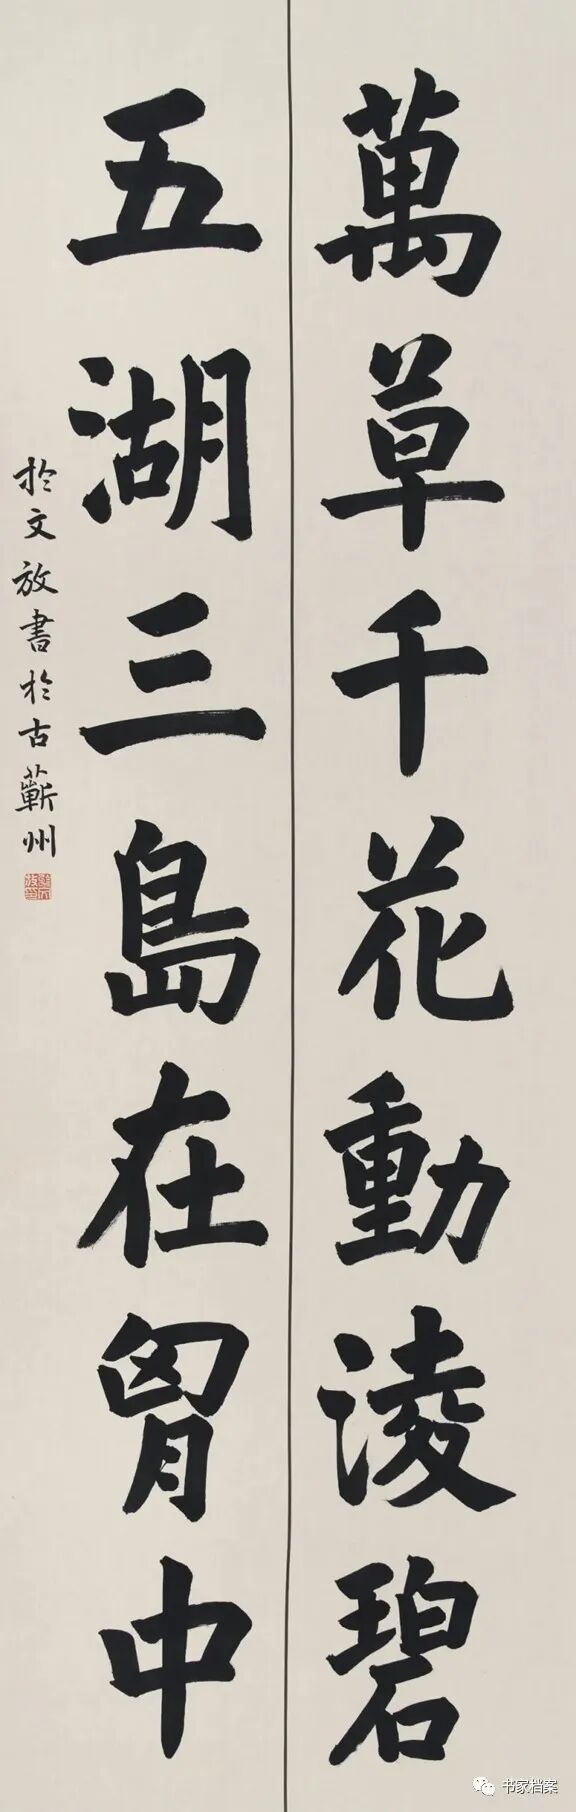 萬草千花動淩碧
五湖三島在胷中
於文放書於古蘄州
书家档案